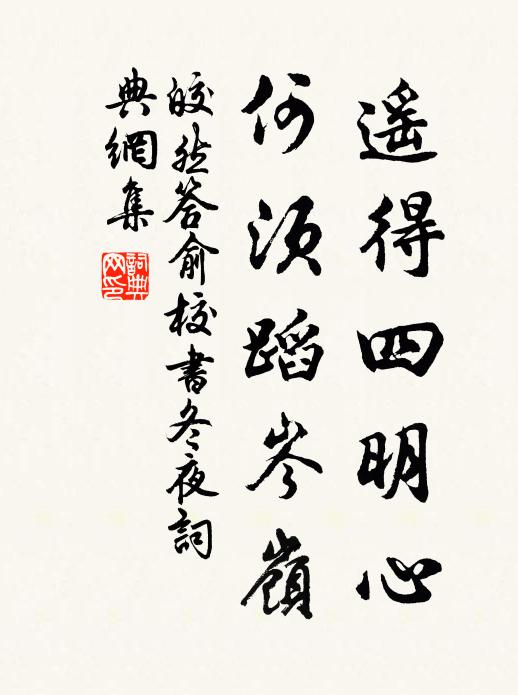 遥得四明心
何須蹈岑嶺
皎然答俞校書冬夜詞
典網集
詞典网印